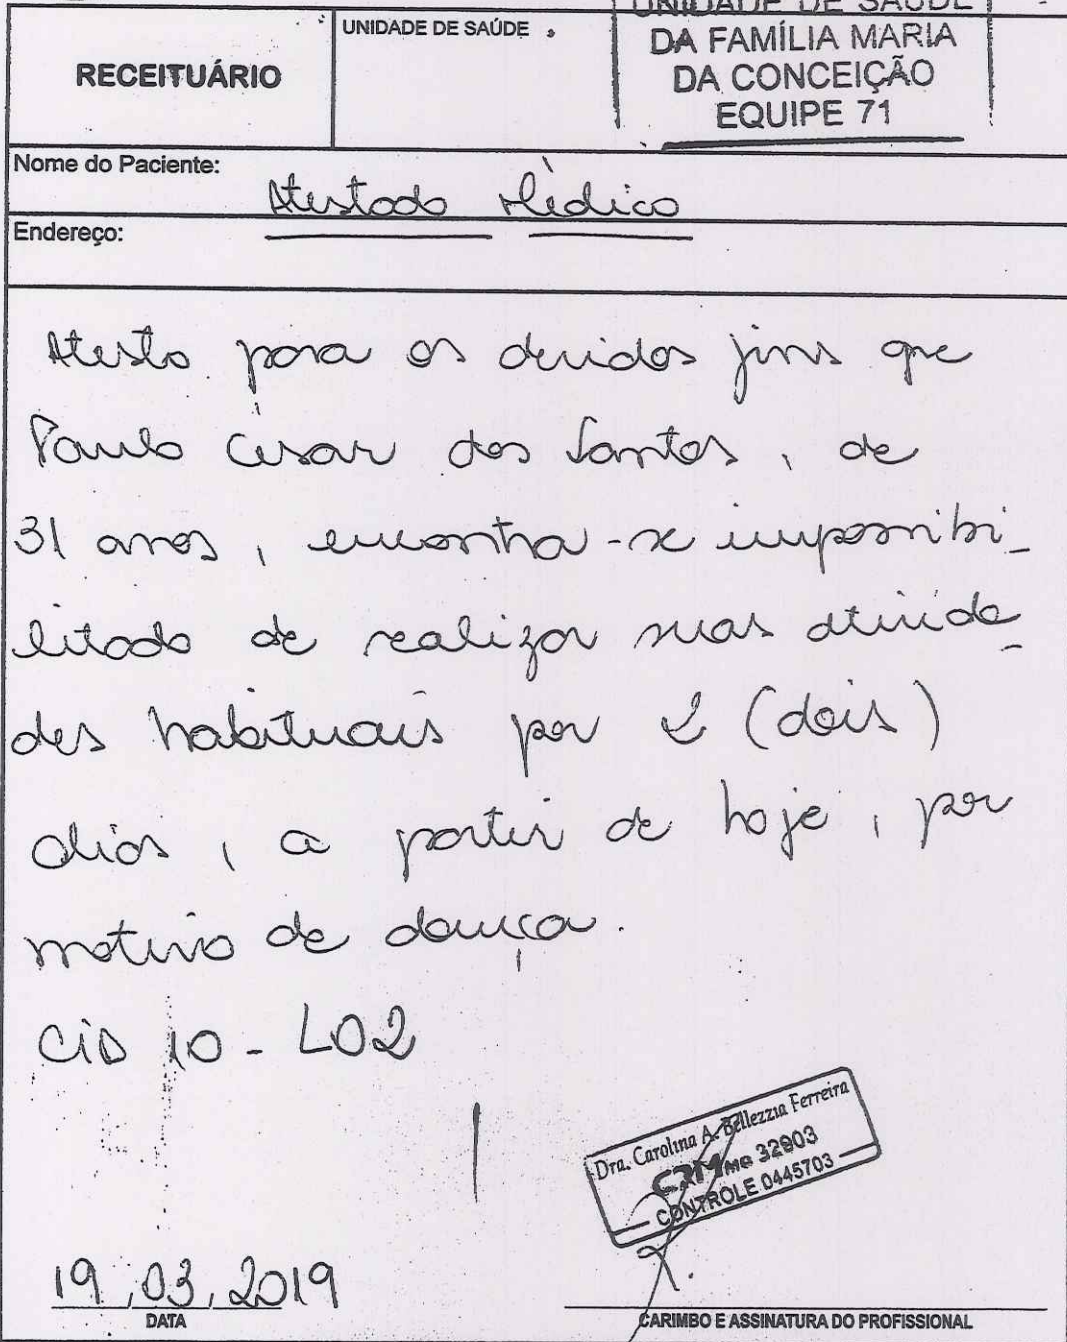 UNIDADE DE SAÚDE
RECEITUÁRIO
UNIDADE DE SAÚDE
DA FAMÍLIA MARIA
DA CONCEIÇÃO
EQUIPE 71
Nome do Paciente:
Atestado Médico
Endereço:
Atesto para os devidos fins que
Paulo César dos Santos, de
31 anos, encontra-se impossibi-
litado de realizar suas ativida-
des habituais por 2 (dois)
dias, a partir de hoje, por
motivo de doença.
CID 10 - L02
Dra. Carolina A. Bellezzia Ferreira
CRM MG 32903
CONTROLE 0445703
19, 03, 2019
DATA
CARIMBO E ASSINATURA DO PROFISSIONAL